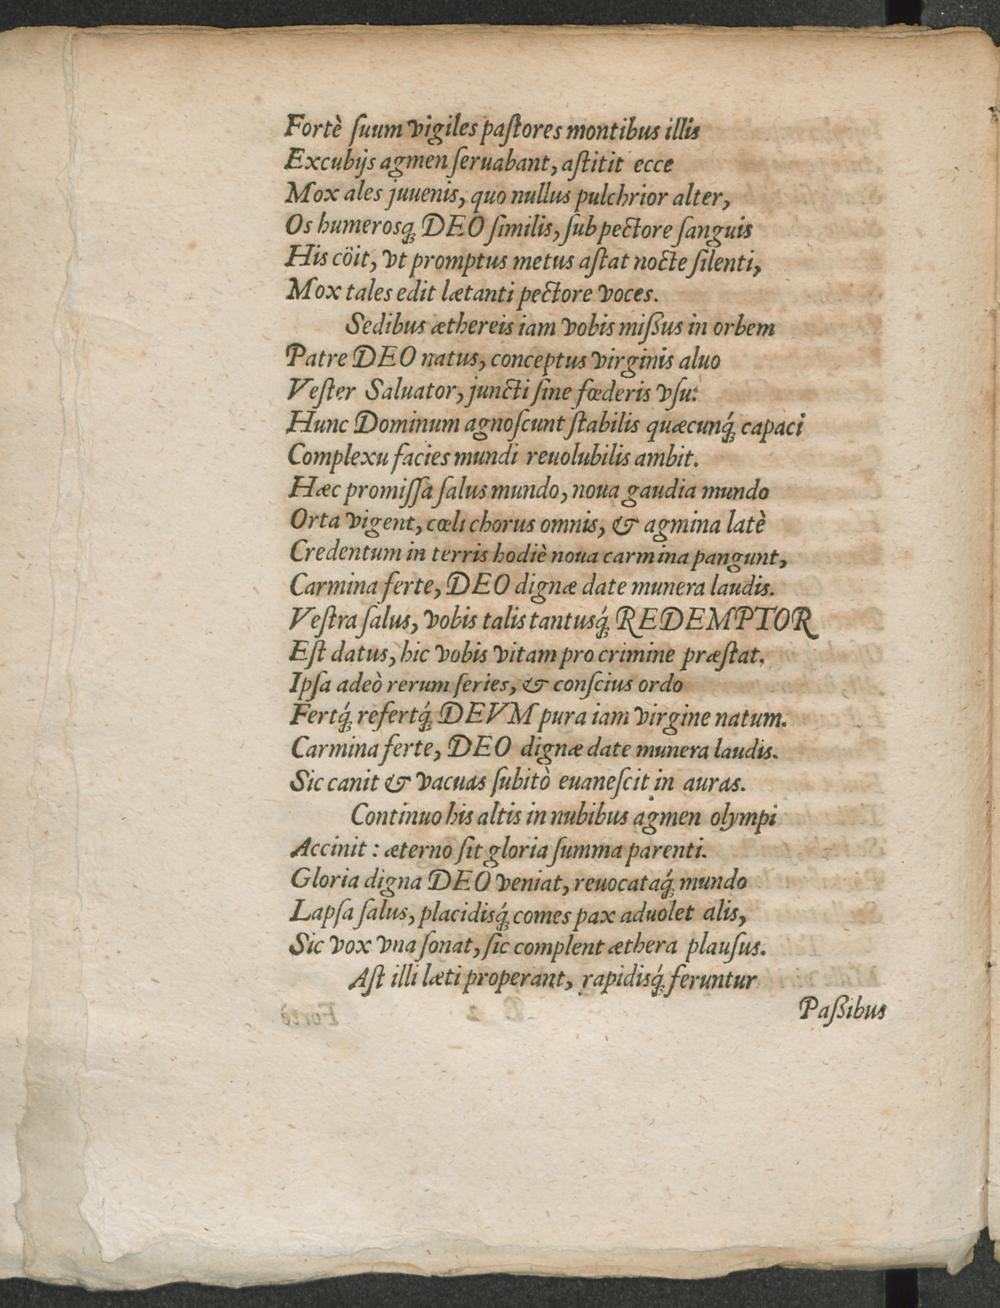 Fortè ſuum vigiles paſtores montibus illis
Excubijs agmen ſeruabant, aſtitit ecce
Mox ales juuenis, quo nullus pulchrior alter,
Os humerosq́; DEO ſimilis, ſub pectore ſanguis
His cöit, vt promptus metus aſtat nocte ſilenti,
Mox tales edit lætanti pectore voces.
Sedibus æthereis iam vobis miſsus in orbem
Patre DEO natus, conceptus virginis aluo
Veſter Saluator, juncti ſine fœderis vſu:
Hunc Dominum agnoſcunt ſtabilis quæcunq́; capaci
Complexu facies mundi reuolubilis ambit.
Hæc promiſſa ſalus mundo, noua gaudia mundo
Orta vigent, cœli chorus omnis, & agmina latè
Credentum in terris hodiè noua carmina pangunt,
Carmina ferte, DEO dignæ date munera laudis.
Veſtra ſalus, vobis talis tantusq́; REDEMPTOR
Eſt datus, hic vobis vitam pro crimine præſtat.
Ipſa adeò rerum ſeries, & conſcius ordo
Fertq́; refertq́; DEVM pura iam virgine natum.
Carmina ferte, DEO dignæ date munera laudis.
Sic canit & vacuas ſubitò euaneſcit in auras.
Continuo his altis in nubibus agmen olympi
Accinit: æterno ſit gloria ſumma parenti.
Gloria digna DEO veniat, reuocataq́; mundo
Lapſa ſalus, placidisq́; comes pax aduolet alis,
Sic vox vna ſonat, ſic complent æthera plauſus.
Aſt illi læti properant, rapidisq́; feruntur
Paſsibus